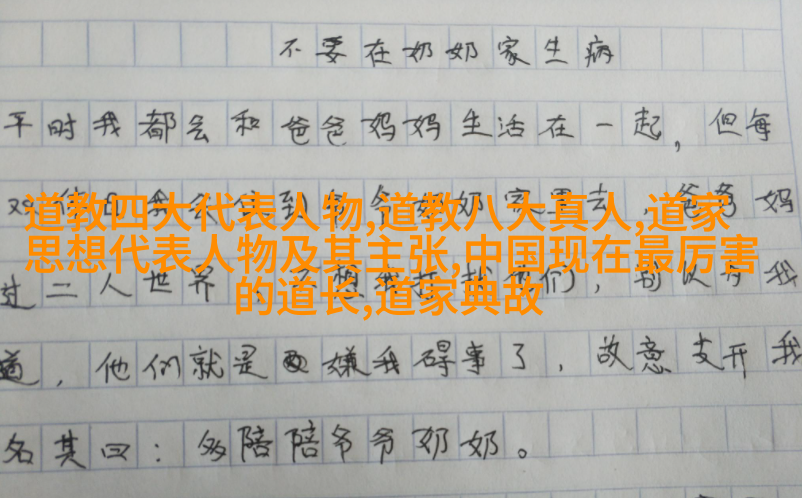 不要在奶奶家生病
平时我都会和爸爸妈妈生活在一起，但每
道教四大代表人物,道教八大真人,道家
思想代表人物及其主张,中国现在最厉害
的道长,道家典故
爸爸妈
过二人世界
我
道，他们就是嫌我碍事了，故意支开我
名其曰：多陪陪爷爷奶奶。